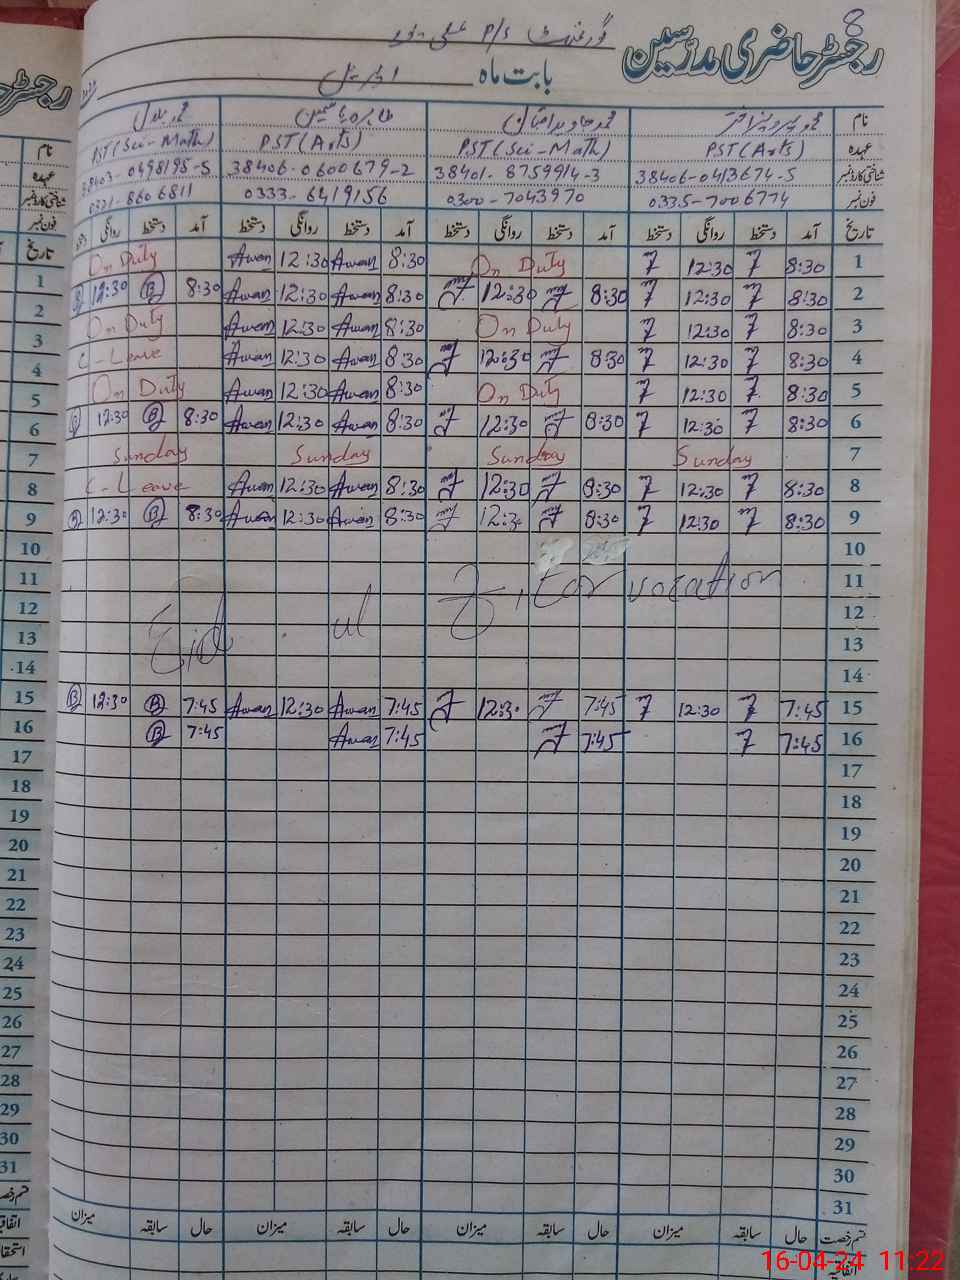 رجسٹر حاضری مدرسین
8
گورنمنٹ P/S
بابت ماہ اپریل
نام محمد جاوید اقبال محمد بلال
عہدہ PST (Arts) PST (Sci-Math) PST (Arts) PST (Sci-Math)
شناختی کارڈ نمبر 38406-0413674-5 38401-8759914-3 38406-0600679-2 38403-0498195-5
فون نمبر 0335-7006774 0300-7043970 0333-6419156 0321-8606811
تاریخ آمد دستخط روانگی دستخط آمد دستخط روانگی دستخط آمد دستخط روانگی دستخط آمد دستخط روانگی
1 8:30 12:30 On Duty 8:30 Awan 12:30 Awan On Duty
2 8:30 12:30 8:30 12:30 8:30 Awan 12:30 Awan 8:30 B 12:30 B
3 8:30 12:30 On Duty 8:30 Awan 12:30 Awan On Duty
4 8:30 12:30 8:30 12:30 8:30 Awan 12:30 Awan C-Leave
5 8:30 12:30 On Duty 8:30 Awan 12:30 Awan On Duty
6 8:30 12:30 8:30 12:30 8:30 Awan 12:30 Awan 8:30 B 12:30 B
7 Sunday Sunday Sunday Sunday
8 8:30 12:30 8:30 12:30 8:30 Awan 12:30 Awan C-Leave
9 8:30 12:30 8:30 12:30 8:30 Awan 12:30 Awan 8:30 B 12:30 B
10
11
12
Eid ul Fitar vocation
13
14
15 7:45 12:30 7:45 12:30 7:45 Awan 12:30 Awan 7:45 B 12:30 B
16 7:45 7:45 7:45 Awan 7:45 B
17
18
19
20
21
22
23
24
25
26
27
28
29
30
31
قسم رخصت حال سابقہ میزان حال سابقہ میزان حال سابقہ میزان حال سابقہ میزان
اتفاقیہ
16-04-24 11:22